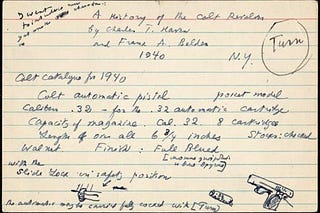 I want
A History of the Colt Revolver
by Charles T. Haven
and Frank A. Belden
1940 N.Y.
Turn
Colt catalogue for 1940
Colt automatic pistol pocket model
Caliber .32 - for the .32 automatic cartridge
Capacity of magazine, Cal. 32. 8 cartridges
Length over all 6 3/4 inches Stocks: checked
Walnut Finish: Full Blued
with the
Slide Lock in safety position
the automatic may be carried fully cocked with [Turn]